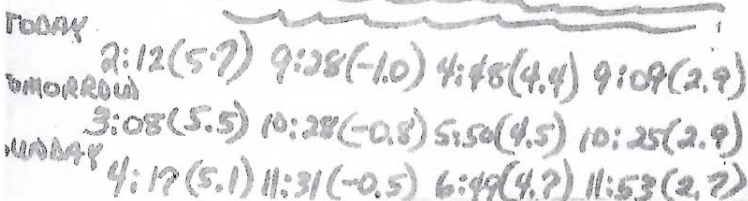 TODAY
2:12(5.7) 9:28(-1.0) 4:48(4.4) 9:09(2.9)
TOMORROW
3:08(5.5) 10:28(-0.8) 5:50(4.5) 10:25(2.9)
SUNDAY
4:17(5.1) 11:31(-0.5) 6:49(4.7) 11:53(2.7)